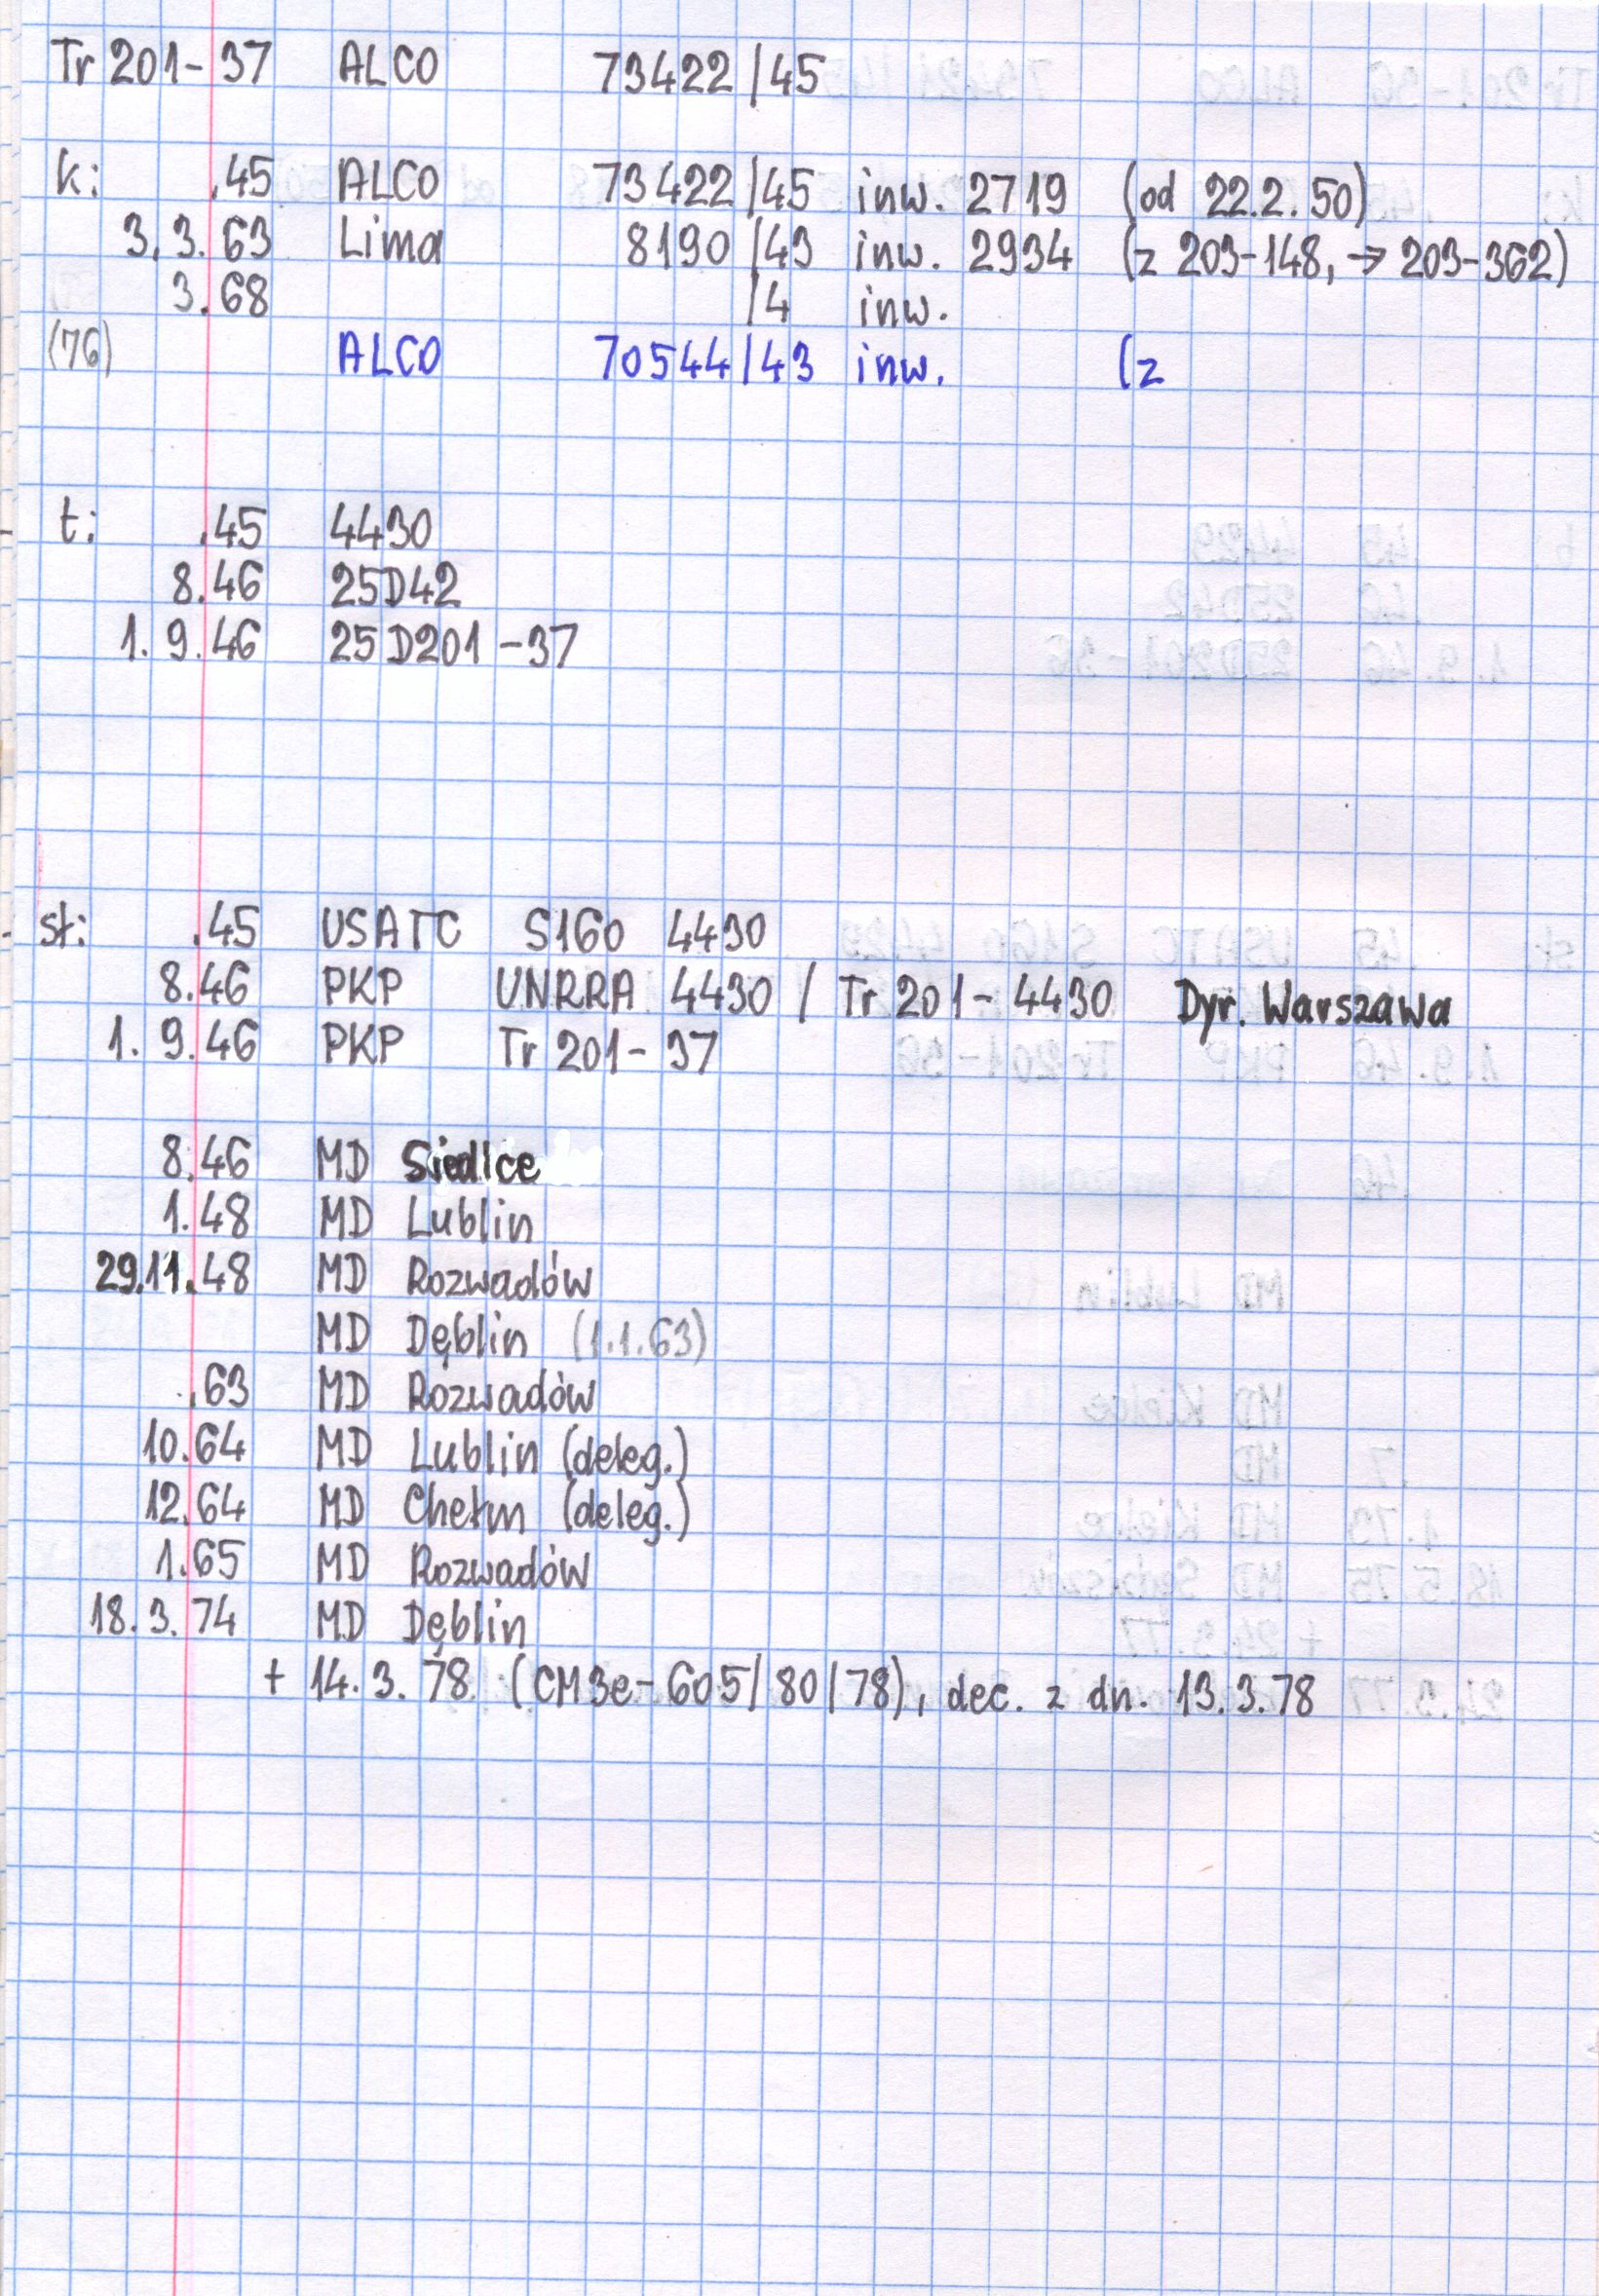 Tr 201-37 ALCO 73422/45
k: .45 ALCO 73422/45 inw. 2719 (od 22.2.50)
3.3.63 Lima 8190/43 inw. 2934 (z 203-148, → 203-362)
3.68 /4 inw.
(76) ALCO 70544/43 inw. (z
t: .45 4430
8.46 25D42
1.9.46 25D201-37
st: .45 USATC S160 4430
8.46 PKP UNRRA 4430 / Tr 201-4430 Dyr. Warszawa
1.9.46 PKP Tr 201-37
8.46 MD Siedlce
1.48 MD Lublin
29.11.48 MD Rozwadów
MD Dęblin (1.1.63)
.63 MD Rozwadów
10.64 MD Lublin (deleg.)
12.64 MD Chełm (deleg.)
1.65 MD Rozwadów
18.3.74 MD Dęblin
+ 14.3.78 (CM3e-605/80/78), dec. z dn. 13.3.78